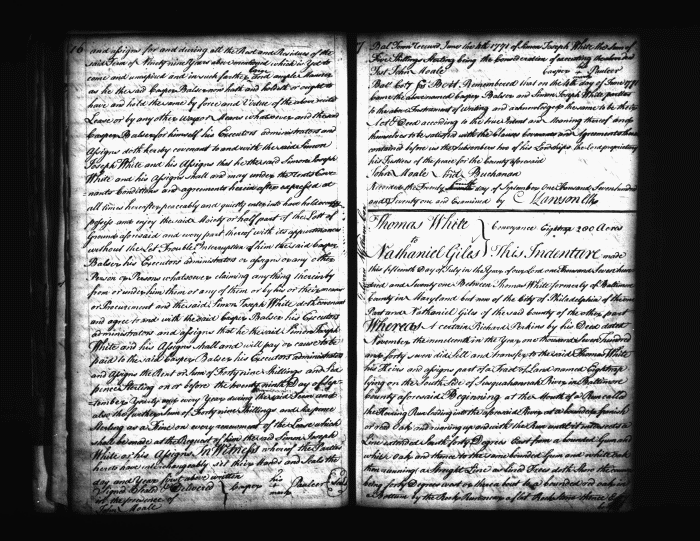 16
and assigns for and during all the Rest and Residue of the
said Term of Ninety nine Years above mentioned which is Yet to
come and unexpired and in such further and ample Manner
as he the said Casper Balser now hath and holdeth or ought to
have and hold the same by force and Virtue of the above recited
Lease or by any other ways or Means whatsoever and the said
Casper Balser for himself his Executors administrators and
Assigns doth hereby covenant to and with the said Simon
Joseph White and his Assigns that he the said Simon Joseph
White and his Assigns shall and may under the Rents Cove-
nants Conditions and agreements herein after expressed at
all times hereafter peaceably and quietly enter into have hold occupy
possess and enjoy the said Moiety or half part of the Lot of
Ground aforesaid and every part thereof with its appurtenances
without the Let Trouble Interruption of him the said Casper
Balser his Executors administrators or assigns or any other
Person or Persons whatsoever claiming any thing therein by
from or under him them or any of them or by his or their means
or Procurement and the said Simon Joseph White doth covenant
and agree to and with the said Casper Balser his Executors
administrators and assigns that he the said Simon Joseph
White and his Assigns shall and will pay or cause to be
paid to the said Casper Balser his Executors administrators
and Assigns the Rent or Sum of Forty nine Shillings and Six
pence Sterling on or before the twenty ninth Day of Sep-
tember Yearly and every Year during the said Term and
also the further Sum of Forty nine Shillings and Six pence
Sterling as a Fine on every renewment of the Lease which
shall be made at the Request of him the said Simon Joseph
White or his Assigns In Witness whereof the Parties
hereto have interchangeably set their Hands and Seals the
day and Year first above written
Signed Sealed & Delivered } Casper his mark Pauleer Seal
in the presence of
John Moale
Balt Town Received June the 4th 1771 of Simon Joseph White the Sum of
Five Shillings Sterling being the Consideration of
Test John Moale Casper Pauleer
Balt Coty Ss Be it Remembered that on the 4th day of June 1771
came the above named Casper Balser and Simon Joseph White parties
to the above Instrument of Writing and acknowledged the same to be their
Act & Deed according to the true Intent and Meaning thereof and
themselves to be satisfied with the Clauses Covenants and Agreements therein
contained before us the Subscribers two of his Lordships the Lord proprietary
his Justices of the peace for the County aforesaid
John Moale And Buchanan
Received the Twenty day of September One Thousand Seven hundred
and Seventy One and Examined by Lawson
Thomas White } Conveyance Eightrop 200 Acres
To
Nathaniel Giles } This Indenture made
this fifteenth Day of July in the Year of our Lord one Thousand Seven hun
dred and Seventy one Between Thomas White formerly of Baltimore
County in Maryland but now of the City of Philadelphia of the one
Part and Nathaniel Giles of the said County of the other part
Whereas A certain Richard Perkins by his Deed dated
November the nineteenth in the Year one thousand Seven hundred
and forty seven did Sell and transfer to the said Thomas White
his Heirs and assigns part of a Tract of Land named Eightrop
lying on the South Side of Susquehannah River in Baltimore
County aforesaid Beginning at the Mouth of a Run called
the Herring Run leading into the aforesaid River at a bounded Spanish
or red oak and running up and with the Run until it intersects a
Line extended South forty Degrees East from a bounded Gum and
white Oak and thence to the same bounded Gum and white Oak
then running a Straight Line as
being forty Degrees west or thereabout to a bounded red oak in